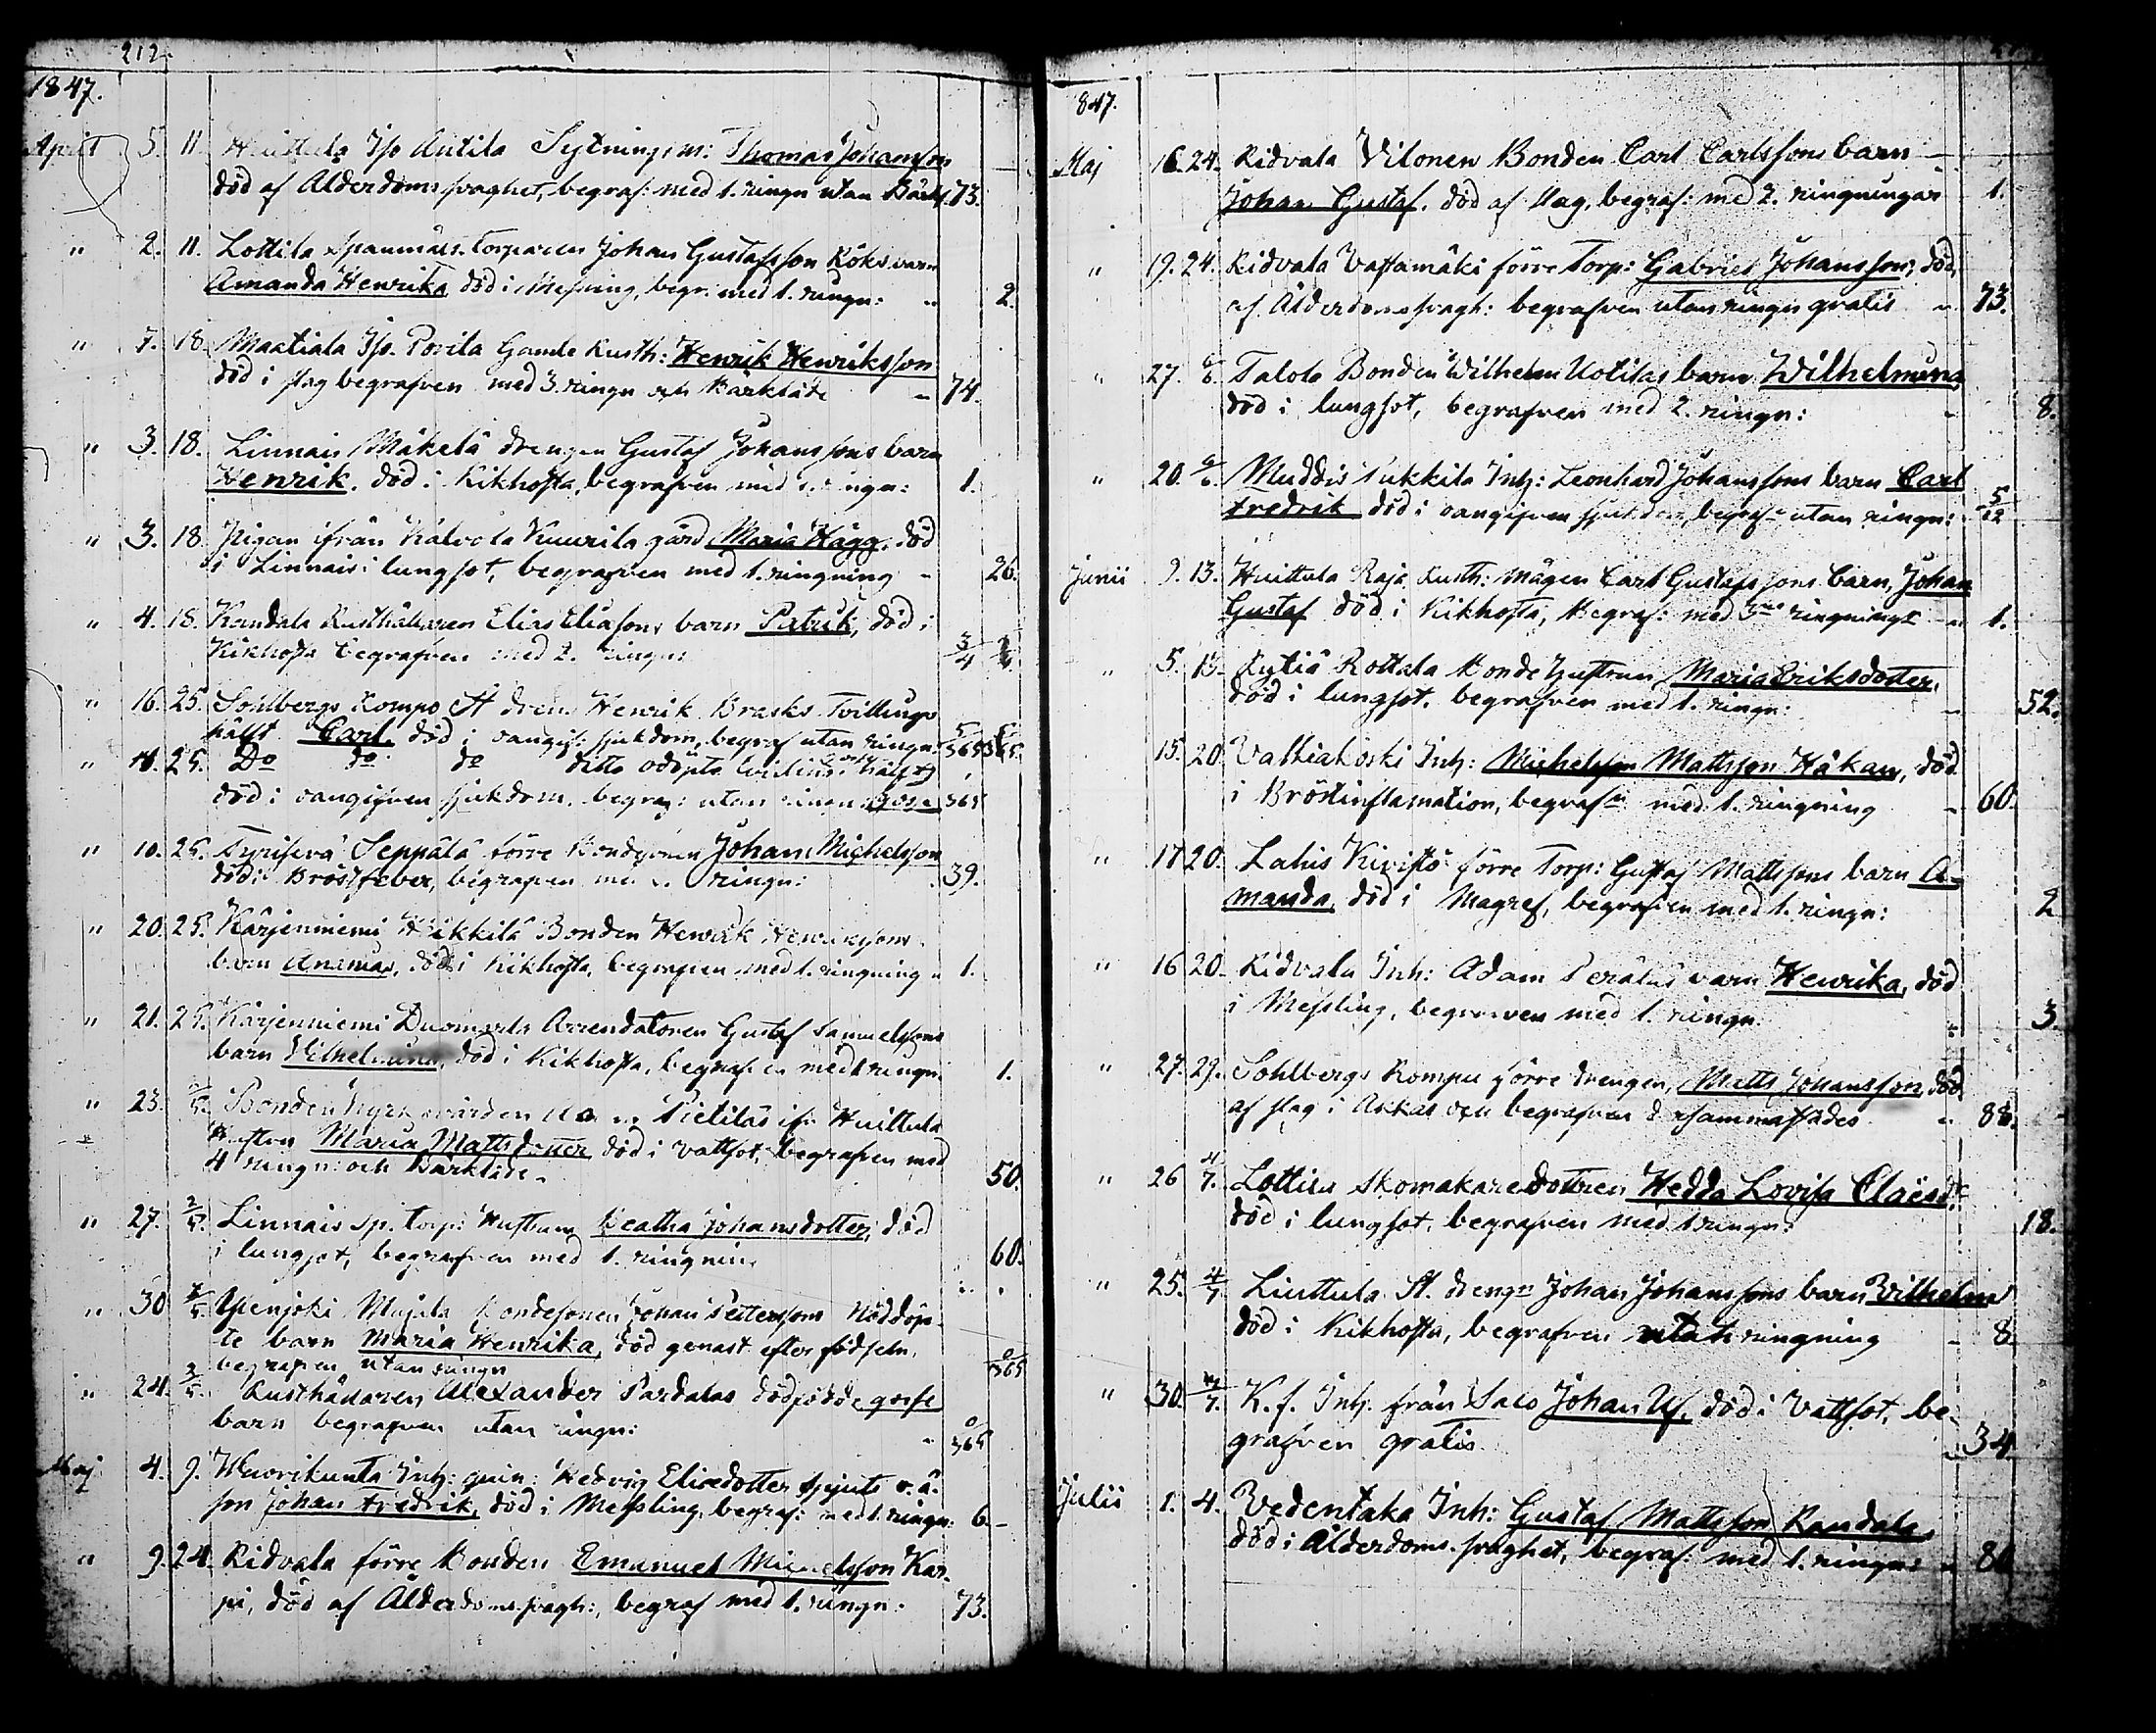 212.
1847.
April 5. 11. Huittula Iso Antila Sytningsm: Thomas Johansson
död af Ålderdomssvaghet, begraf: med 1. ringn utan Bårkl. 73.
" 2. 11. Lottila Torparen Johan Gustafsson Röks barn
Amanda Henrika, död i Messling, begr: med 1. ringn: " 2.
" 7. 18. Maatiala Iso Povila Gamle Rusth: Henrik Henriksson
död i slag begrafven med 3. ringn och Bårkläde " 74.
" 3. 18. Linnais Mäkelä drengen Gustaf Johanssons barn
Henrik, död i Kikhosta, begrafven med 1. ringn: 1.
" 3. 18. Pigan ifrån Kalvola Kuurila gård Maria Hägg, död
i Linnais i lungsot, begrafven med 1. ringning " 26.
" 4. 18. Kandala Rusthållaren Elias Eliasons barn Patrik, död i
Kikhosta begrafven med 2. ringn: 3/4
" 16. 25. Sohlbergs Kompo St dren: Henrik Brasks Tvillings
hälft Carl, död i oangif: sjukdom, begraf utan ringn: 5/365
" 25. Do do do ditto odöpta hälft
död i oangifven sjukdom, begraf: utan ringn: 365
" 10. 25. Seppälä förre Bondesonen Johan Michelsson
död i Bröstfeber, begrafven med ringn: 39.
" 20. 25. Kärjenniemi Heikkilä Bonden Henrik Henrikssons
barn Ananias, död i Kikhosta, begrafven med 1. ringning " 1.
" 21. 25. Kärjenniemi Duomarla Arrendatoren Gustaf Samuelssons
barn Vilhelmina, död i Kikhosta, begrafven med 1 ringn. 1.
" 23. Bonden Kyrkovärden Pietiläs ifr: Huittula
Hustru Maria Mattsdotter död i Vattsot, begrafven med
4 ringn: och Bårkläde. 50.
" 27. 2/5. Linnais sp. torp: Hustrun Beatha Johansdotter, död
i lungsot, begrafven med 1. ringning 60.
" 30 Bondesonen Johan Petterssons Nöddöp-
te barn Maria Henrika, död genast efter födseln,
begrafven utan ringn 0/365
" 24. 2/5. Rusthållaren Alexander Pardalas dödfödde gosse
barn begrafven utan ringn: " 0/365
Maj 4. 9. Wuorikunta Inh: quin: Hedvig Eliedotter o. ä.
son Johan Fredrik, död i Messling, begraf: med 1. ringn: 6.
" 9. 24. Ridvala förre Bonden Emanuel Michelsson Kar-
pi, död af Ålderdomssvagh:, begraf med 1. ringn: 73.
847.
Maj 16. 24. Ridvala Vilonen Bonden Carl Carlssons barn
Johan Gustaf, död af slag, begraf: med 2. ringningar 1.
" 19. 24. Ridvala Vassamäki förre Torp: Gabriel Johansson, död
af Ålderdomssvagh: begrafven utan ringn gratis " 73.
" 27. 6/6. Talola Bonden Wilhelm Uotilas barn Wilhelmina
död i lungsot, begrafven med 2. ringn: 8.
" 20. 6/6. Muddis Pukkila Inh: Leonhard Johanssons barn Carl
Fredrik död i oangifven sjukdom, begrafn utan ringn: 5/12
Junii 9. 13. Huittula Raja Rusth: mågen Carl Gustafssons barn, Johan
Gustaf död i Kikhosta, Begraf: med 3ne ringningr " 1.
" 5. 13. Rytiä Rottala Bonde Hustrun Maria Eriksdotter,
död i lungsot, begrafven med 1. ringn: 52.
15. 20. Valkiakoski Inh: Michelsson Mattsson Håkan, död
i Bröstinflamation, begrafn med 1. ringning " 60.
" 17 20. Lahis Kivistö förre Torp: Gustaf Mattssons barn A-
manda, död i Magref, begrafven med 1. ringn: 2
" 16 20. Ridvala Inh: Adam Peräläs barn Henrika, död
i Messling, begrafven med 1. ringn: 3.
" 27. 29. Sohlbergs Kompu förre drengen, Matts Johansson, död
af slag i Akkas och begrafven dersammastädes " 88.
" 26 4/7. Lottila Skomakaredottren Hedda Lovisa Claësdr
död i lungsot, begrafven med 1 ringn: 18.
" 25. 4/7 Liuttula St. drengn Johan Johanssons barn Vilhelm
död i Kikhosta, begrafven utan ringning 8.
" 30. 4/7. K.f. Inh. från Salo Johan Uf, död i Vattsot, be-
grafven gratis " 34.
Julii 1. 4. Vedentaka Inh: Gustaf Mattsson Randala,
död i Ålderdoms svaghet, begraf: med 1. ringn: